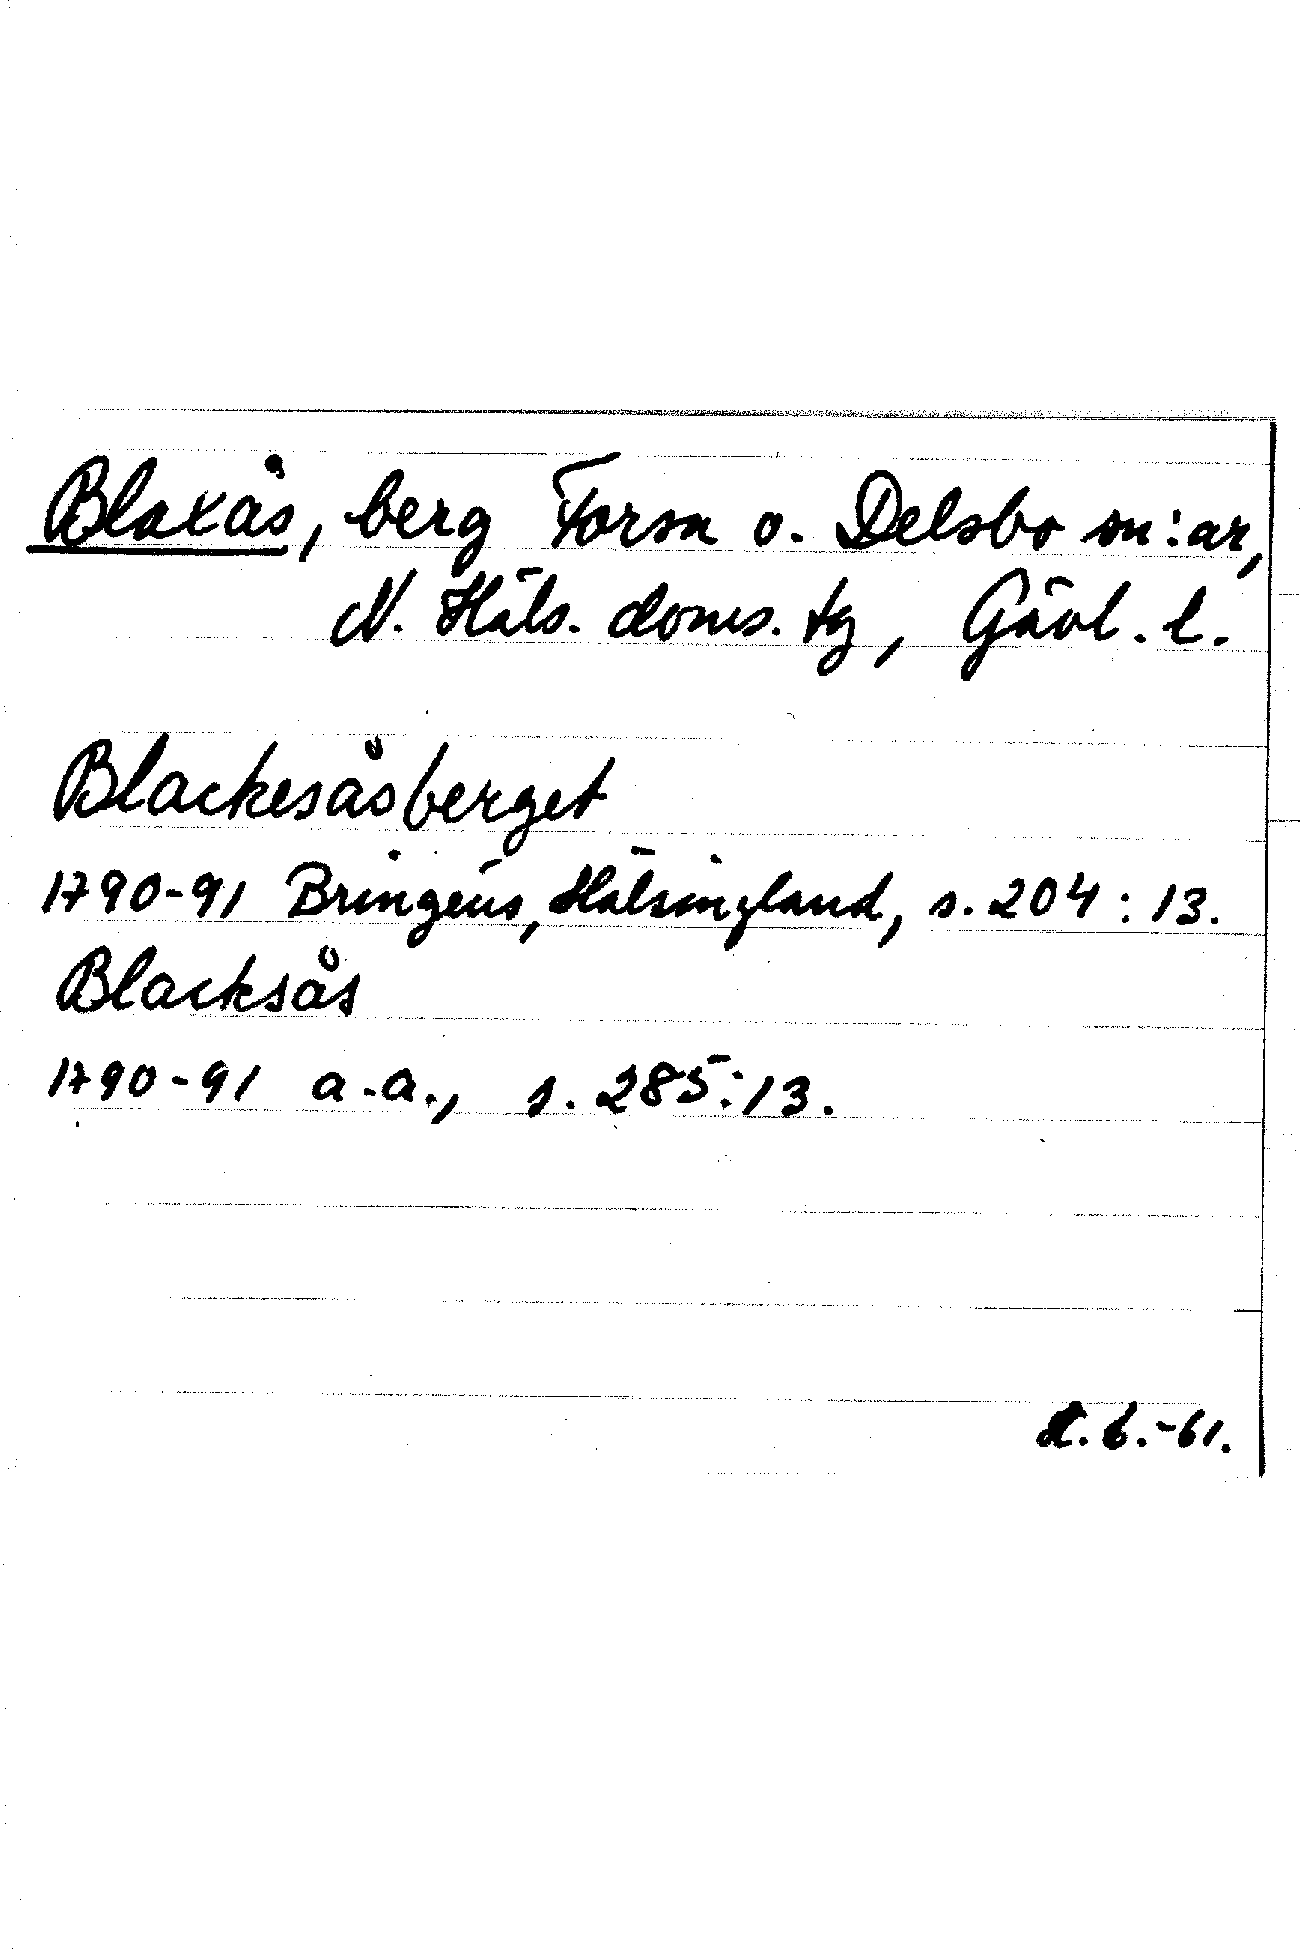 Blaxås, berg Forsa o. Delsbo sn:ar,
N. Häls. doms. tg, Gävl. l.
Blackesåsberget
1790-91 Bringéus, Hälsingland, s. 204 : 13.
Blacksås
1790-91 a.a., s. 285:13.
6.-61.